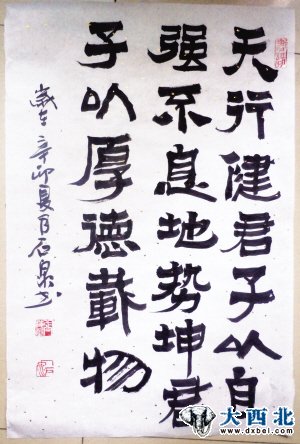 天行健君子以自
强不息地势坤君
子以厚德载物
岁在辛卯夏月石泉书
大西北
www.dxbei.com